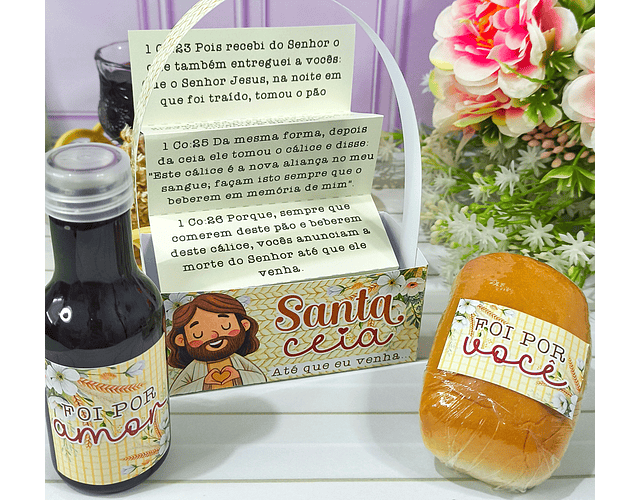 1 Co:23 Pois recebi do Senhor o
que também entreguei a vocês:
que o Senhor Jesus, na noite em
que foi traído, tomou o pão
1 Co:25 Da mesma forma, depois
da ceia ele tomou o cálice e disse:
"Este cálice é a nova aliança no meu
sangue, façam isto sempre que o
beberem em memória de mim".
1 Co:26 Porque, sempre que
comerem deste pão e beberem
deste cálice, vocês anunciam a
morte do Senhor até que ele
venha.
Santa
ceia
Até que eu venha...
FOI POR
amor
FOI POR
você